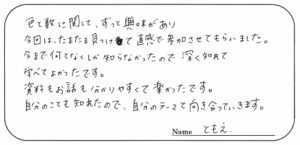 色と数に関して、ずっと興味があり
今回は、たまたま見つけて直感で参加させてもらいました。
今まで何となくしか知らなかったので深く知れて
学べてよかったです。
資料もお話も分かりやすくて楽かったです。
自分のことも知れたので、自分のテーマと向きなっていきます。
Name ともえ